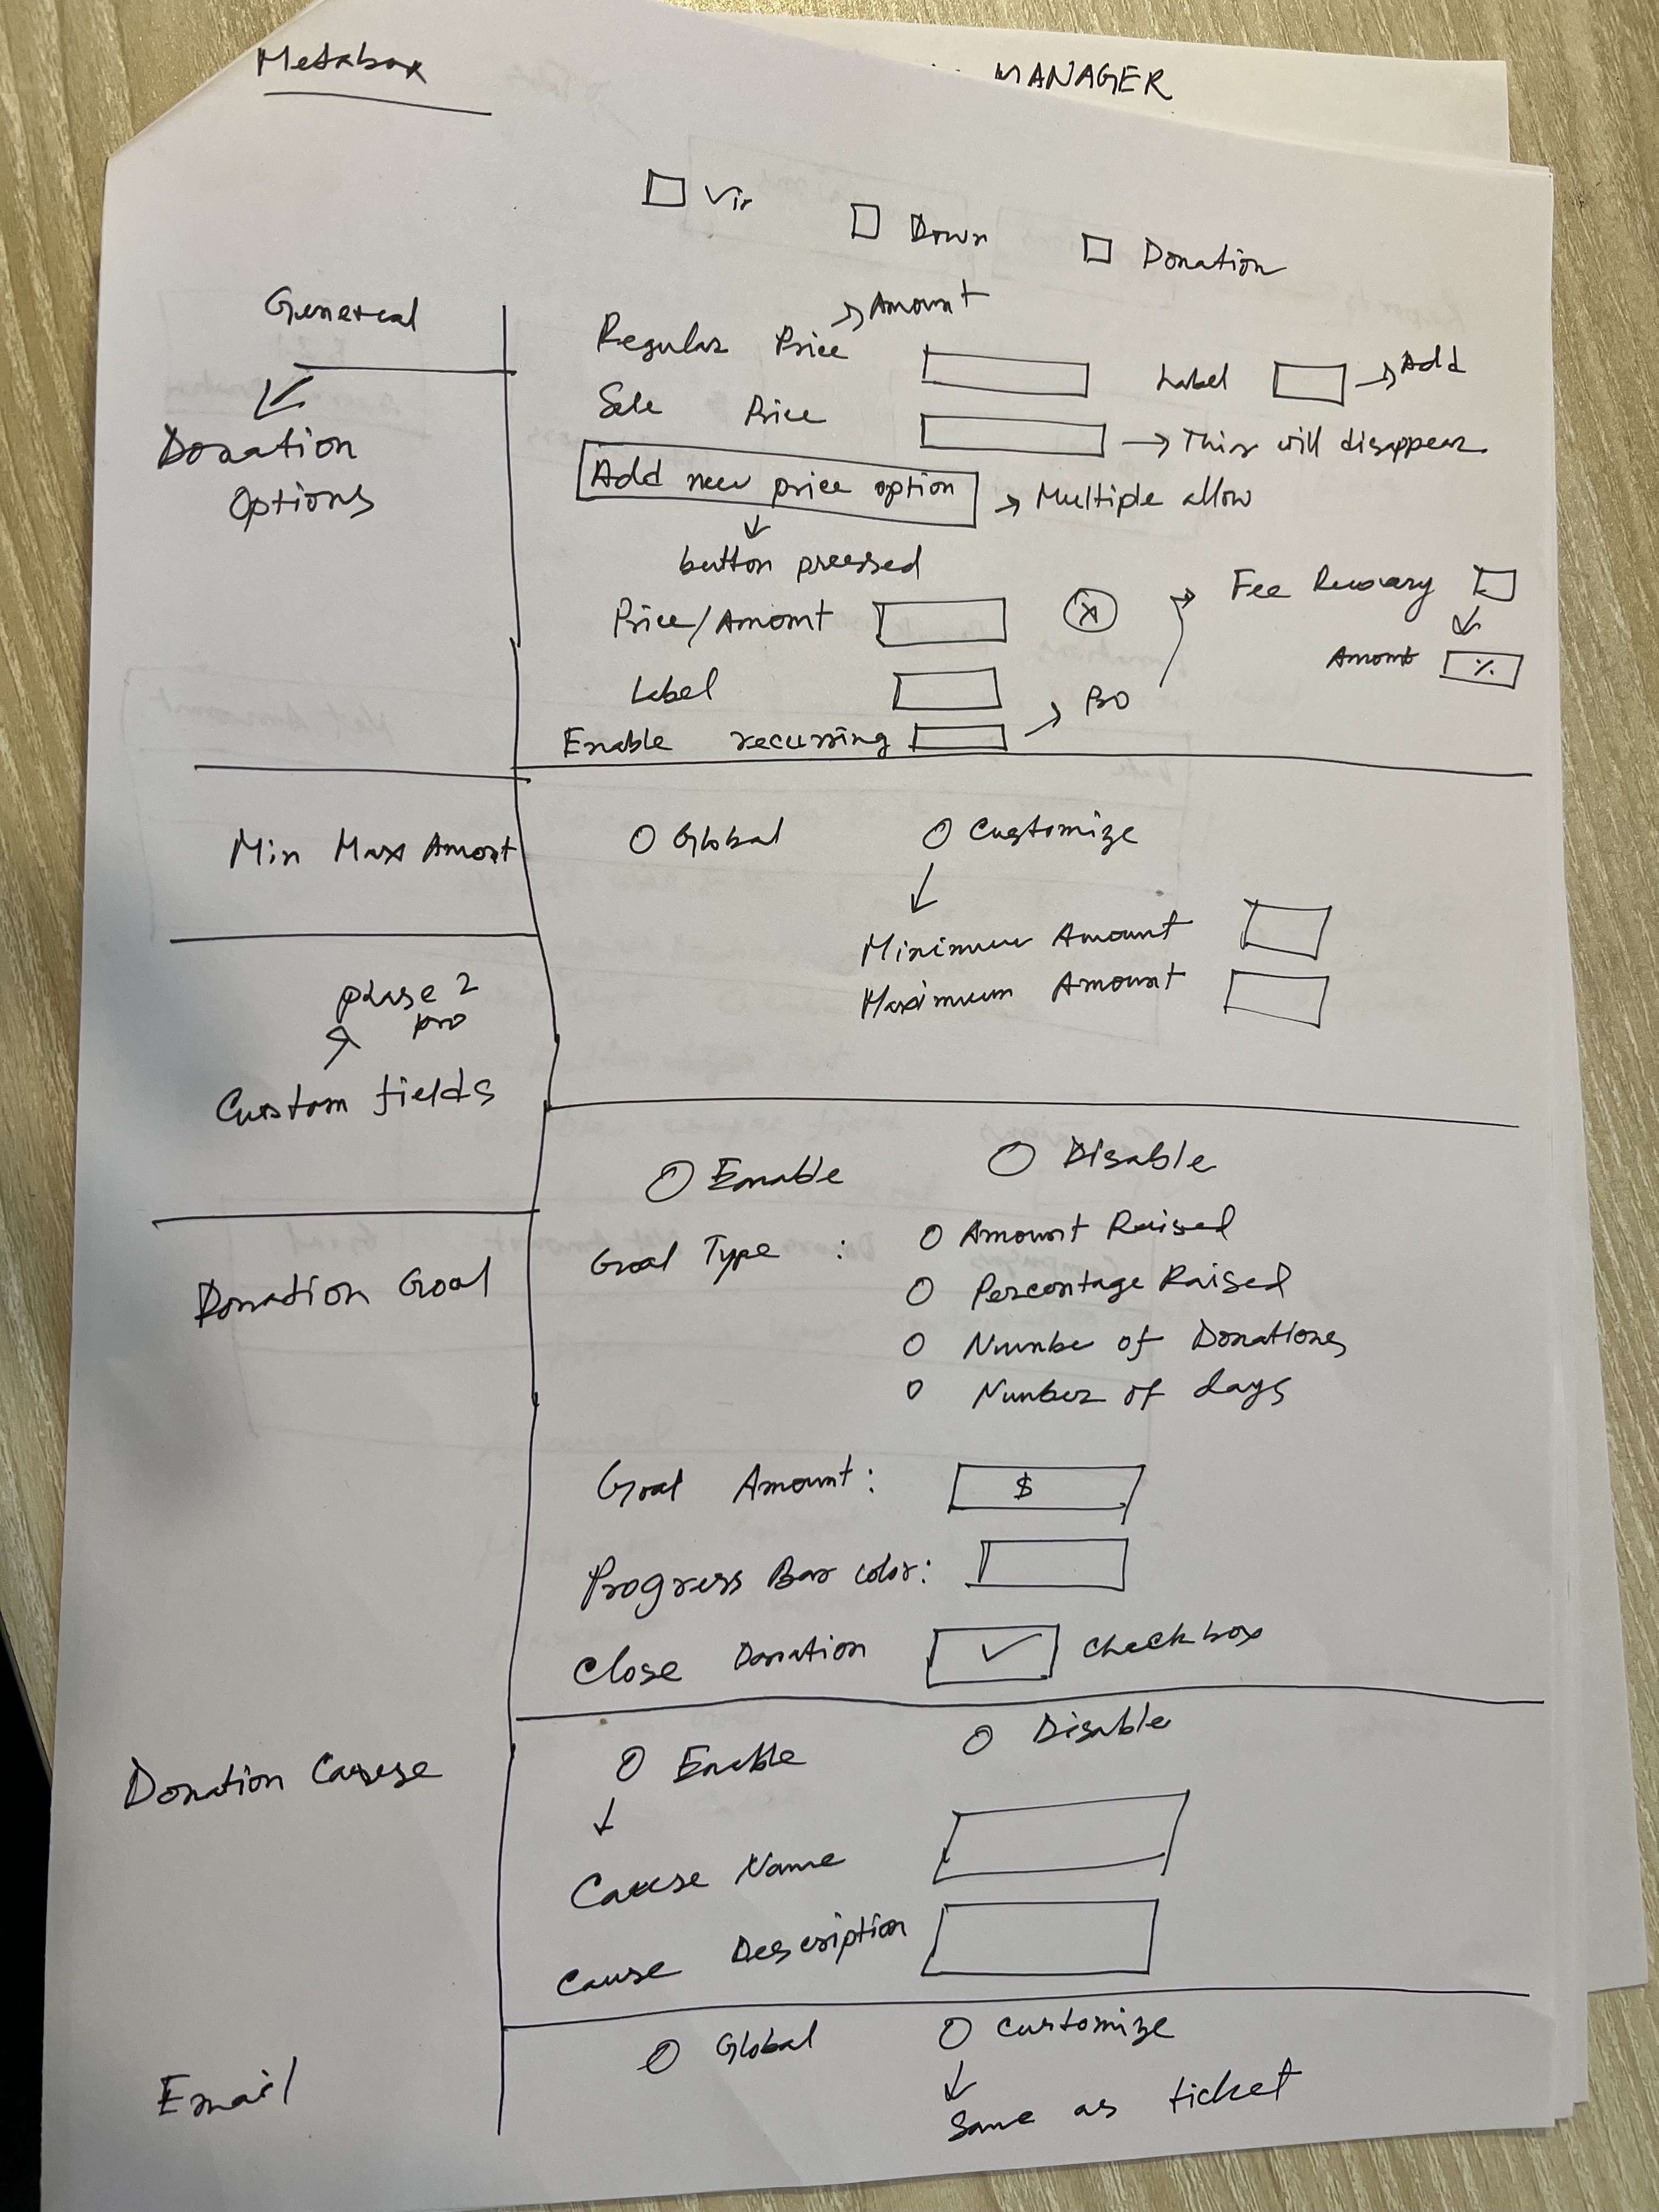 Metabox
MANAGER
Vir
Down
Donation
General
Donation
Options
Regular Price → Amount
Label → Add
Sale Price → This will disappear
Add new price option → Multiple allow
button pressed
Price/Amount
x
Fee Recovery
Amount %
Label
Enable recurring → PRO
Min Max Amount
Global
Customize
Minimum Amount
Maximum Amount
phase 2
pro
Custom fields
Donation Goal
Enable
Disable
Goal Type :
Amount Raised
Percentage Raised
Number of Donations
Number of days
Goal Amount: $
Progress Bar color:
Close Donation ✓ checkbox
Donation Cause
Enable
Disable
Cause Name
Cause Description
Email
Global
Customize
Same as ticket